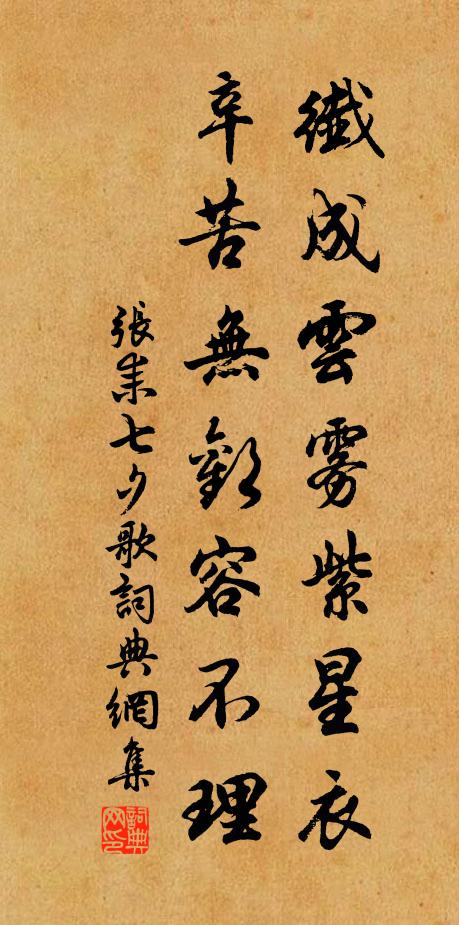 織成雲雾紫星衣
辛苦無歡容不理
張耒七夕歌詞典網集
詞典网印